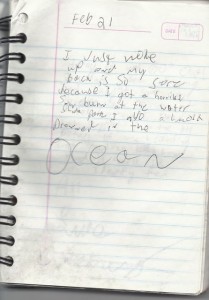 Feb 21
I Just woke
up and my
back is so sore
because I got a horrible
sun burn at the water
park I
in the
Ocean